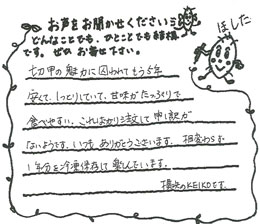 お声をお聞かせください
どんなことでも、ひとことでも結構
です。ぜひ お寄せ下さい。
ほした
切甲の魅力に囚われてもう5年
安くて、しっとりしていて、甘味がたっぷりで
食べやすい。こればかり注文して申し訳が
ないようです。いつも ありがとうございます。相変わらず
1年分を冷凍保存して楽しんでいます。
横浜のKEIKOです。